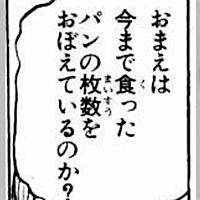 おまえは
今まで食った
パンの枚数を
おぼえているのか?